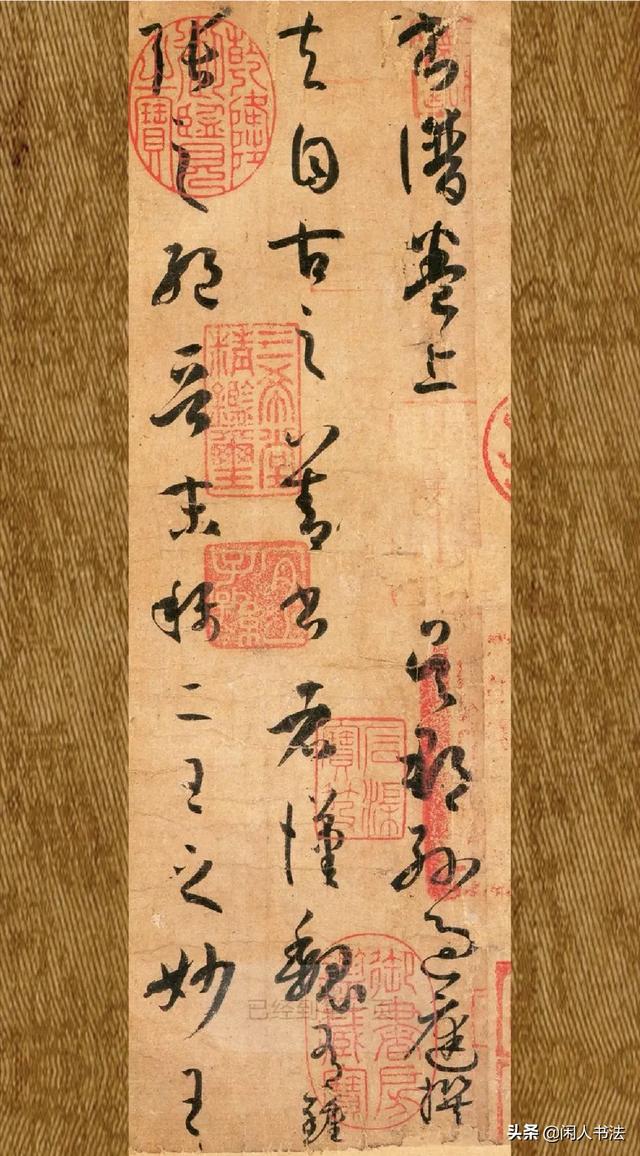 書譜卷上 吳郡孫過庭撰
夫自古之善書者漢魏有鍾
張之絕晉末稱二王之妙王
乾隆御覽之寶
三希堂精鑑璽
宜子孫
石渠寶笈
御書房鑑藏寶
已经到
头条 @闲人书法